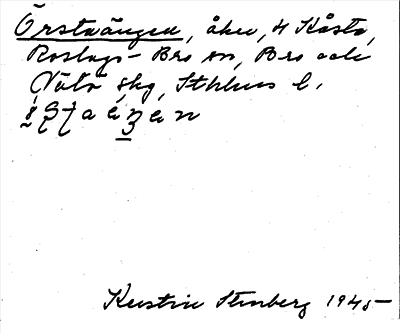 Örstaängen, åker, 4 Kåsta,
Roslags-Bro sn, Bro och
Vätö skg, Sthlms l.
Kerstin Stenberg 1945